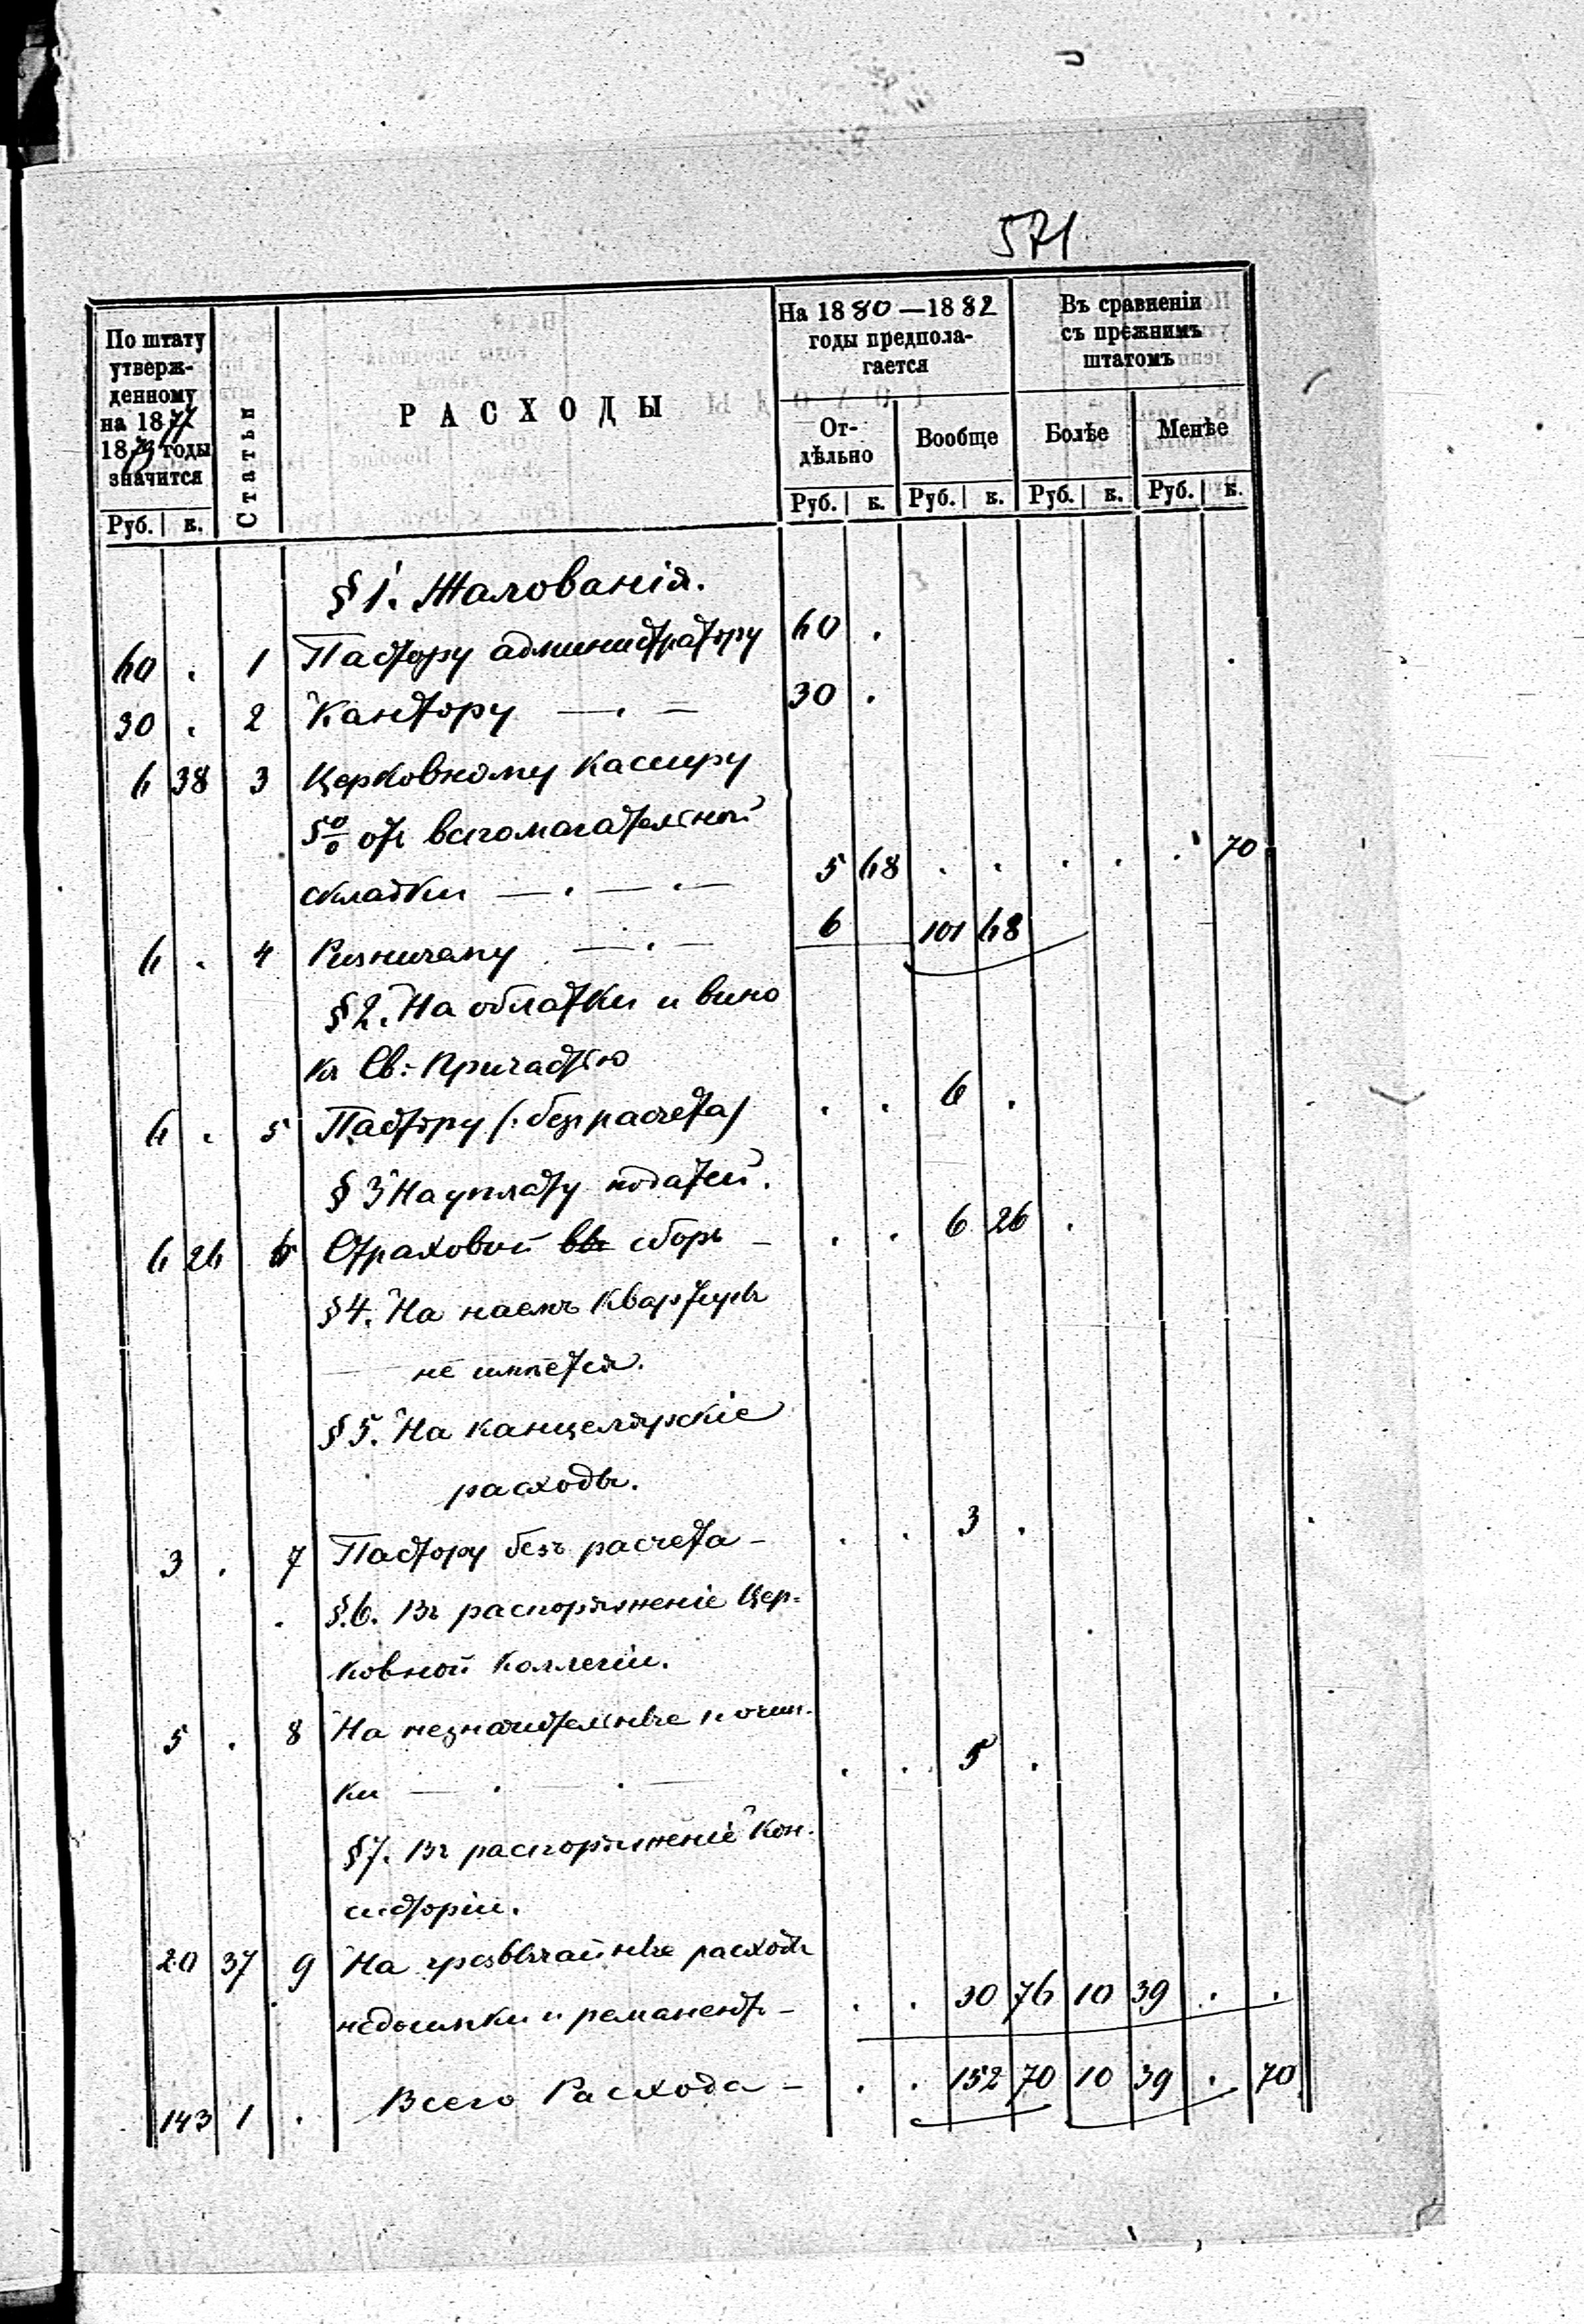 571.
По штату
утверж-
денному
на 1877
1879 годы
значится
Руб. к.
Статьи
РАСХОДЫ
На 1880—1882
годы предпола-
гается
От-
дѣльно
Вообще
Руб. к. Руб. к.
Въ сравненіи
съ прежнимъ
штатомъ
Болѣе Менѣе
Руб. к. Руб. к.
§ 1. Жалованія.
60 . 1 Пастору администратору 60 .
30 . 2 Кантору — . — 30 .
6 38 3 Церковному Кассиру
5% отъ вспомагательной
складки — . — . — 5 68 . . . . . 70
6 . 4 Ризничаму . — . — 6 101 68
§ 2. На облатки и вино
къ Св: Причастію
6 . 5 Пастору (: безъ расчета) . . 6 .
§ 3 На уплату податей.
6 26 6 Страховой сборъ — . . 6 26 .
§ 4. На наемъ Квартиръ
— не имѣется.
§ 5. На канцелярскіе
расходы.
3 . 7 Пастору безъ расчета — . . 3 .
§. 6. Въ распоряженіе Цер-
ковной Коллегіи.
5 . 8 На незначительные почин-
ки — . — . — . . 5 .
§ 7. Въ распоряженіе Кон-
систоріи.
20 37 9 На чрезвычайные расходы
недоимки и реманентъ — . . 30 76 10 39 . .
143 1 . Всего Расхода — . . 152 70 10 39 . 70